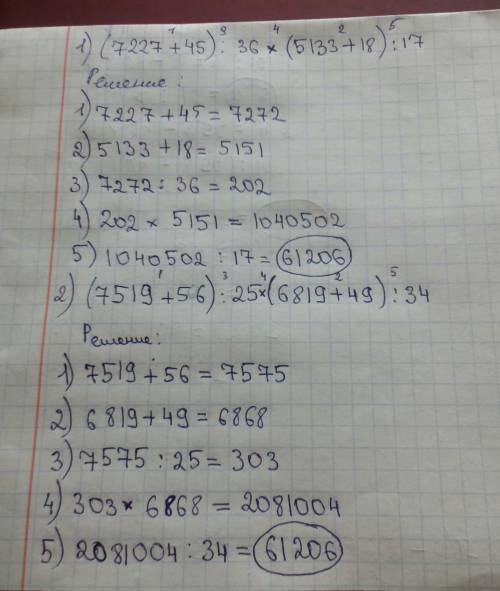 1) (7227 + 45) : 36 × (5133 + 18) : 17
Решение :
1) 7227 + 45 = 7272
2) 5133 + 18 = 5151
3) 7272 : 36 = 202
4) 202 × 5151 = 1040502
5) 1040502 : 17 = 61206
2) (7519 + 56) : 25 × (6819 + 49) : 34
Решение :
1) 7519 + 56 = 7575
2) 6819 + 49 = 6868
3) 7575 : 25 = 303
4) 303 × 6868 = 2081004
5) 2081004 : 34 = 61206